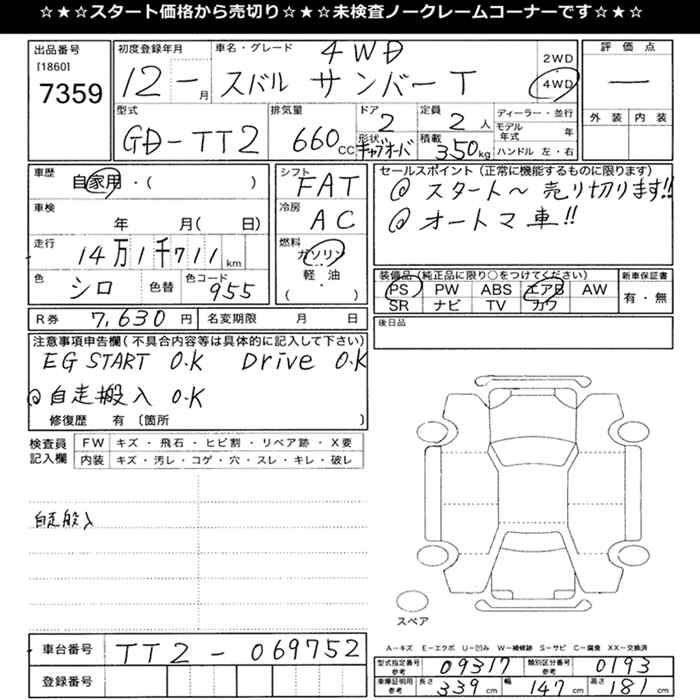 ☆★☆スタート価格から売切り☆★☆未検査ノークレームコーナーです☆★☆
出品番号
[1860]
7359
初度登録年月
12 — 月
車名・グレード
4WD
スバル サンバーT
2WD
4WD
評価点
—
外装 内装
型式
GD-TT2
排気量
660 CC
ドア
2
形状
キャブオーバ
定員
2 人
積載
350 kg
ディーラー・並行
モデル年式 年
ハンドル 左・右
車歴
自家用・( )
車検
年 月( 日)
走行
14万1千711 km
色
シロ
色替
色コード
955
シフト
FAT
冷房
AC
燃料
ガソリン
軽油
( ・ )
セールスポイント(正常に機能するものに限ります)
@ スタート〜 売り切ります!!
@ オートマ車!!
装備品(純正品に限り○をつけてください)
PS PW ABS エアB AW
SR ナビ TV カワ
新車保証書
有・無
R券 7,630 円
名変期限 月 日
後日品
注意事項申告欄(不具合内容等は具体的に記入して下さい)
EG START O.K Drive O.K
@ 自走搬入 O.K
修復歴 有 〔箇所 〕
検査員記入欄
FW キズ・飛石・ヒビ割・リペア跡・X要
内装 キズ・汚レ・コゲ・穴・スレ・キレ・破レ
自走般入
スペア
A-キズ E-エクボ U-凹み W-補修跡 S-サビ C-腐食 XX-交換済
車台番号 TT2-069752
登録番号
型式指定番号 参考 09317 類別区分番号 参考 0193
車庫証明用 参考 長さ 339 cm 幅 147 cm 高さ 181 cm